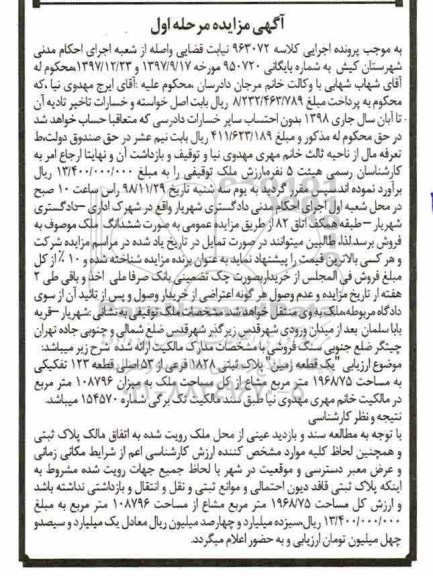 آگهی مزایده مرحله اول
به موجب پرونده اجرایی کلاسه ۹۶۳۰۷۲ نیابت قضایی واصله از شعبه اجرای احکام مدنی
شهرستان کیش به شماره بایگانی ۹۵۰۷۲۰ مورخه ۱۳۹۷/۹/۱۷ و ۱۳۹۷/۱۲/۲۳،محکوم له
آقای شهاب شهابی با وکالت خانم مرجان دادرسان ،محکوم علیه :آقای ایرج مهدوی نیا ،که
محکوم به پرداخت مبلغ ۸/۲۳۲/۴۶۳/۷۸۹ ریال بابت اصل خواسته و خسارات تاخیر تادیه آن
تا آبان سال جاری ۱۳۹۸ بدون احتساب سایر خسارات دادرسی که متعاقبا حساب خواهد شد
در حق محکوم له مذکور و مبلغ ۴۱۱/۶۲۳/۱۸۹ ریال بابت نیم عشر در حق صندوق دولت،ط
تعرفه مال از ناحیه ثالث خانم مهری مهدوی نیا و توقیف و بازداشت آن و نهایتا ارجاع امر به
کارشناسان رسمی هیئت ۵ نفرمارزش ملک توقیفی را به مبلغ ۱۳/۴۰۰/۰۰۰/۰۰۰ ریال
برآورد نموده اندسپس مقرر گردید به یوم سه شنبه تاریخ ۹۸/۱۱/۲۹ راس ساعت ۱۰ صبح
در محل شعبه اول اجرای احکام مدنی دادگستری شهریار واقع در شهرک اداری –دادگستری
شهریار –طبقه همکف اتاق ۸۲ از طریق مزایده عمومی به صورت ششدانگ ملک موصوف به
فروش برسد.لذا، طالبین میتوانند در صورت تمایل در تاریخ یاد شده در مراسم مزایده شرکت
و هر کسی بالاترین قیمت را پیشنهاد نماید به عنوان برنده مزایده شناخته شده و ۱۰ ٪ از کل
مبلغ فروش فی المجلس از خریداربصورت چک تضمینی بانک صرفا ملی اخذ و باقی طی ۲
هفته از تاریخ مزایده و عدم وصول هر گونه اعتراضی از خریدار وصول و پس از تائید آن از سوی
دادگاه مربوطه،ملک به وی منتقل خواهد شد. مشخصات ملک توقیفی به نشانی :شهریار –قریه
بابا سلمان بعد از میدان ورودی شهرقدس زیر گذر شهرقدس ضلع شمالی و جنوبی جاده تهران
چیتگر ضلع جنوبی سنگ فروشی با مشخصات مدارک مالکیت ارائه شده شرح زیر میباشد:
موضوع ارزیابی "یک قطعه زمین" پلاک ثبتی ۱۸۲۸ فرعی از ۵۳ اصلی قطعه ۱۲۳ تفکیکی
به مساحت ۱۹۶۸/۷۵ متر مربع مشاع از کل مساحت ملک به میزان ۱۰۸۷۹۶ متر مربع
در مالکیت خانم مهری مهدوی نیا طبق سند مالکیت تک برگی شماره ۱۵۴۵۷۰ میباشد.
نتیجه و نظر کارشناسی
با توجه به مطالعه سند و بازدید عینی از محل ملک رویت شده به اتفاق مالک پلاک ثبتی
و همچنین لحاظ کلیه موارد مشخص کننده ارزش کارشناسی اعم از شرایط مکانی زمانی
و عرض معبر دسترسی و موقعیت در شهر با لحاظ جمیع جهات رویت شده مشروط به
اینکه پلاک ثبتی فاقد دیون احتمالی و موانع ثبتی و نقل و انتقال و بازداشتی نداشته باشد
و ارزش کل مساحت ۱۹۶۸/۷۵ متر مربع مشاع از مساحت ۱۰۸۷۹۶ متر مربع به مبلغ
۱۳/۴۰۰/۰۰۰/۰۰۰ ریال،سیزده میلیارد و چهارصد میلیون ریال معادل یک میلیارد و سیصدو
چهل میلیون تومان ارزیابی و به حضور اعلام میگردد.